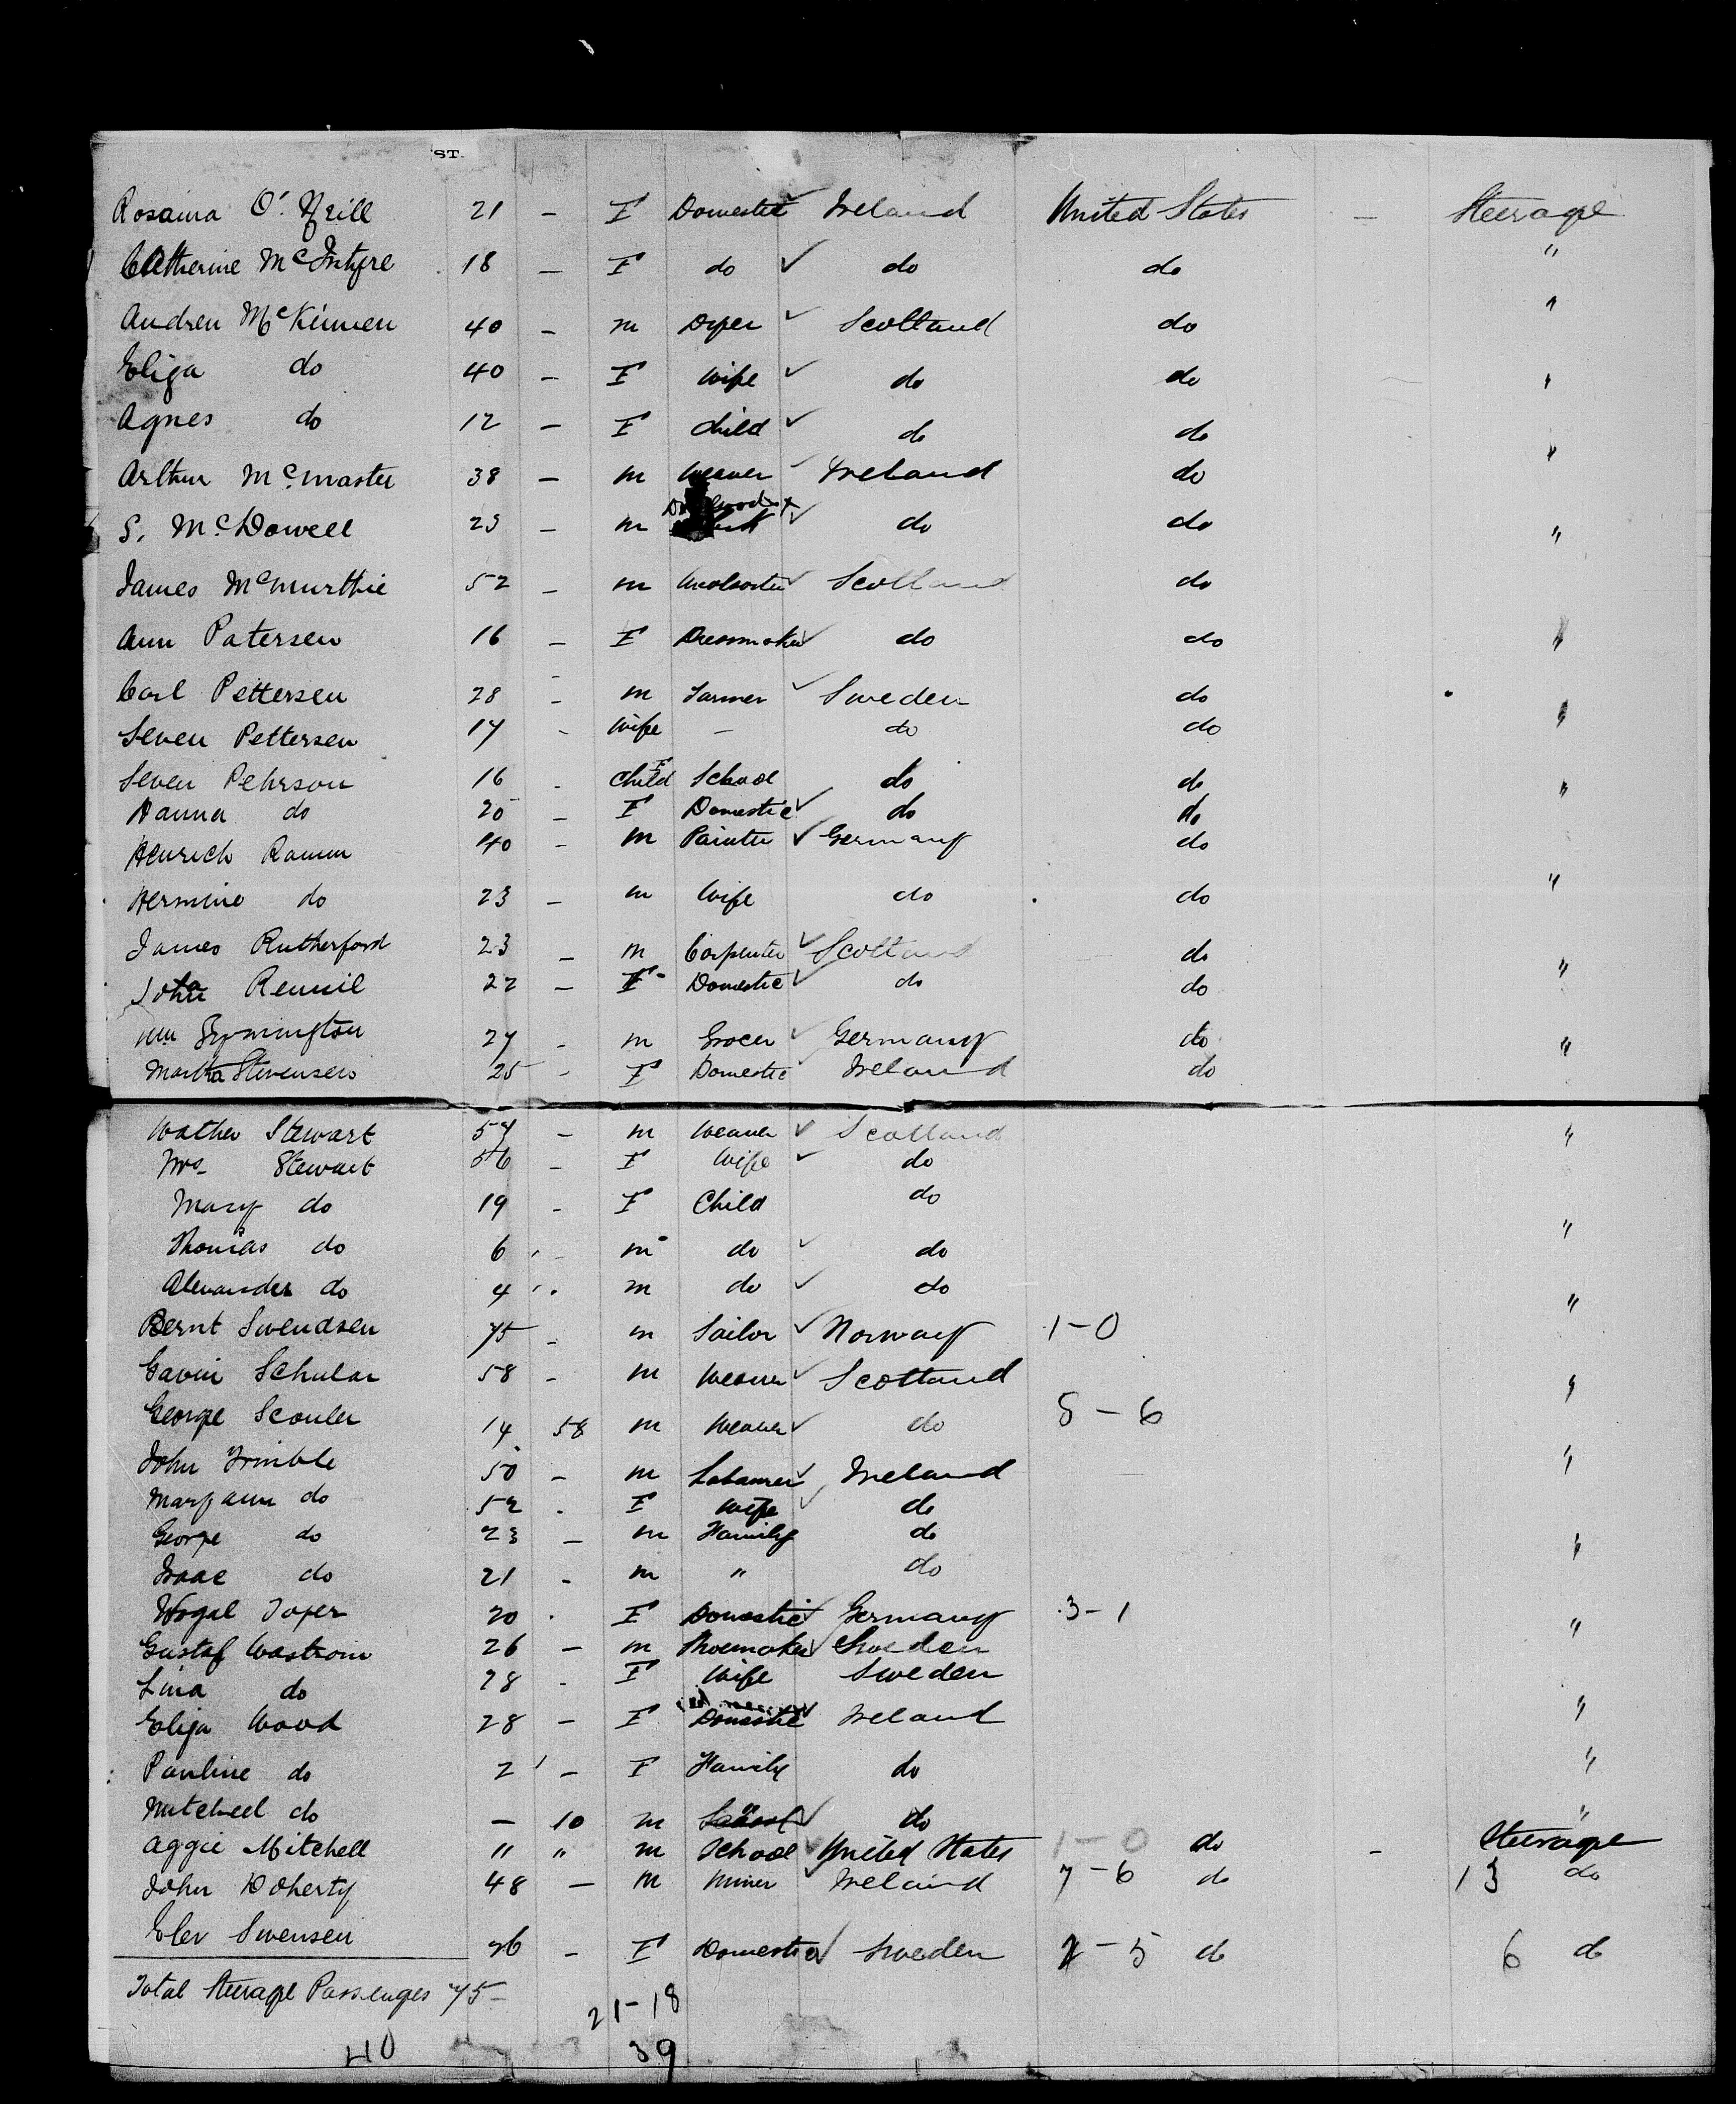 ST.
Rosaina O'Neill 21 – F Domestic ✓ Ireland United States – Steerage
Catherine McIntyre 18 – F do ✓ do do "
Andrew McKinnen 40 – m Dyer ✓ Scotland do "
Eliza do 40 – F Wife ✓ do do "
Agnes do 12 – F Child ✓ do do
Arthur McMaster 38 – m Weaver Ireland do "
S. McDowell 23 – m ✓ do do "
James McMurthie 52 – m Woolsorter ✓ Scotland do
Ann Patersen 16 – F Dressmaker ✓ do do "
Carl Pettersen 28 – m Farmer ✓ Sweden do
Seven Pettersen 17 – Wife – do do "
Seven Pehrson 16 – Child F School do do "
Hanna do 20 – F Domestic ✓ do do
Henrich Ramm 40 – m Painter ✓ Germany do
Hermine do 23 – m Wife do do "
James Rutherford 23 – m Carpenter ✓ Scotland do
Rennie 22 – F Domestic ✓ do do "
Wm Symington 27 – m Grocer ✓ Germany do "
Martha Stevensen 25 – F Domestic ✓ Ireland do
Stewart 57 – m Weaver ✓ Scotland "
Mrs Stewart 56 – F Wife ✓ do
Mary do 19 – F Child do
Thomas do 6 – m do ✓ do "
Alexander do 4 m do ✓ do
Bernt Swendsen 75 – m Sailor ✓ Norway 1–0 "
Gavin Schular 58 – m Weaver ✓ Scotland
George Scouler 14 58 m Weaver ✓ do 5–6 "
John Trimble 50 – m Labourer ✓ Ireland "
Maryann do 52 – F Wife ✓ do
George do 23 – m Family do "
Isaac do 21 – m " do
20 F Domestic ✓ Germany 3–1 "
Gustaf Wastrom 26 – m Shoemaker ✓ Sweden
Lina do 28 – F Wife Sweden
Eliza Wood 28 – F Domestic ✓ Ireland "
Pauline do 2 – F Family do "
Mitcheel do – 10 m School ✓ do "
Aggie Mitchell " " m School ✓ United States 1–0 do – Steerage
John Doherty 48 – m Miner ✓ Ireland 7–6 do 13 do
Swensen 26 – F Domestic ✓ Sweden 2–5 do 6 do
Total Steerage Passenges 75–
21–18
40 39